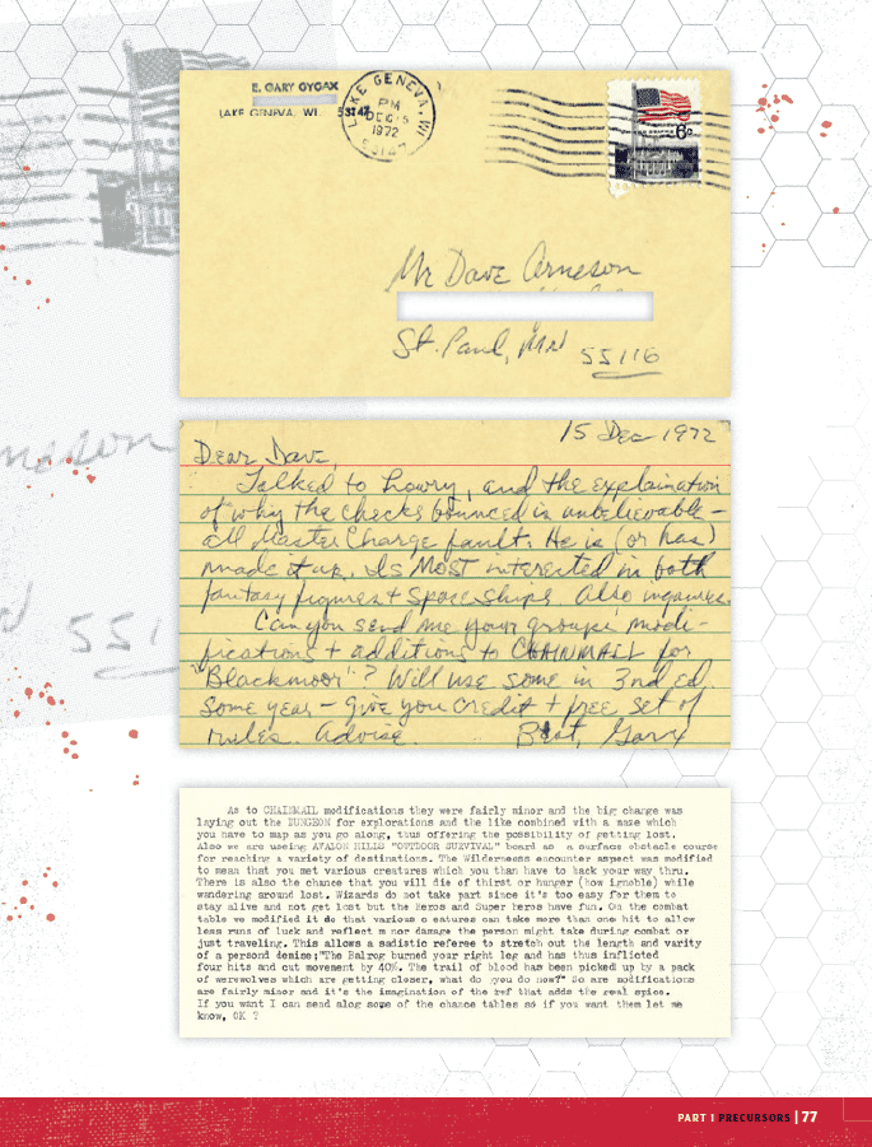 E. GARY GYGAX
LAKE GENEVA, WI. 53147
LAKE GENEVA, WI
PM
DEC 15
1972
53147
6c
Mr Dave Arneson
St. Paul, MN 55116
15 Dec 1972
Dear Dave,
Talked to Lowry, and the explaination
of why the checks bounced is unbelievable –
all Master Charge fault. He is (or has)
made it up. Is MOST interested in both
fantasy figures + space ships. Also inquiries.
Can you send me your groups modi-
fications + additions to CHAINMAIL for
"Blackmoor"? Will use some in 3nd ed.
some year – give you credit + free set of
rules. Advise. Best, Gary
As to CHAINMAIL modifications they were fairly minor and the big change was
laying out the DUNGEON for explorations and the like combined with a maze which
you have to map as you go along, thus offering the possibility of getting lost.
Also we are useing AVALON HILLS "OUTDOOR SURVIVAL" board as a surface obstacle course
for reaching a variety of destinations. The Wilderness encounter aspect was modified
to mean that you met various creatures which you than have to hack your way thru.
There is also the chance that you will die of thirst or hunger (how ignoble) while
wandering around lost. Wizards do not take part since it's too easy for them to
stay alive and not get lost but the Heros and Super heros have fun. On the combat
table we modified it so that various c eatures can take more than one hit to allow
less runs of luck and reflect m nor damage the person might take during combat or
just traveling. This allows a sadistic referee to stretch out the length and varity
of a persond demise;"The Balrog burned your right leg and has thus inflicted
four hits and cut movement by 40%. The trail of blood has been picked up by a pack
of werewolves which are getting closer, what do you do now?" So are modifications
are fairly minor and it's the imagination of the ref that adds the real spice.
If you want I can send alog some of the chance tables so if you want them let me
know, OK ?
PART 1 PRECURSORS | 77